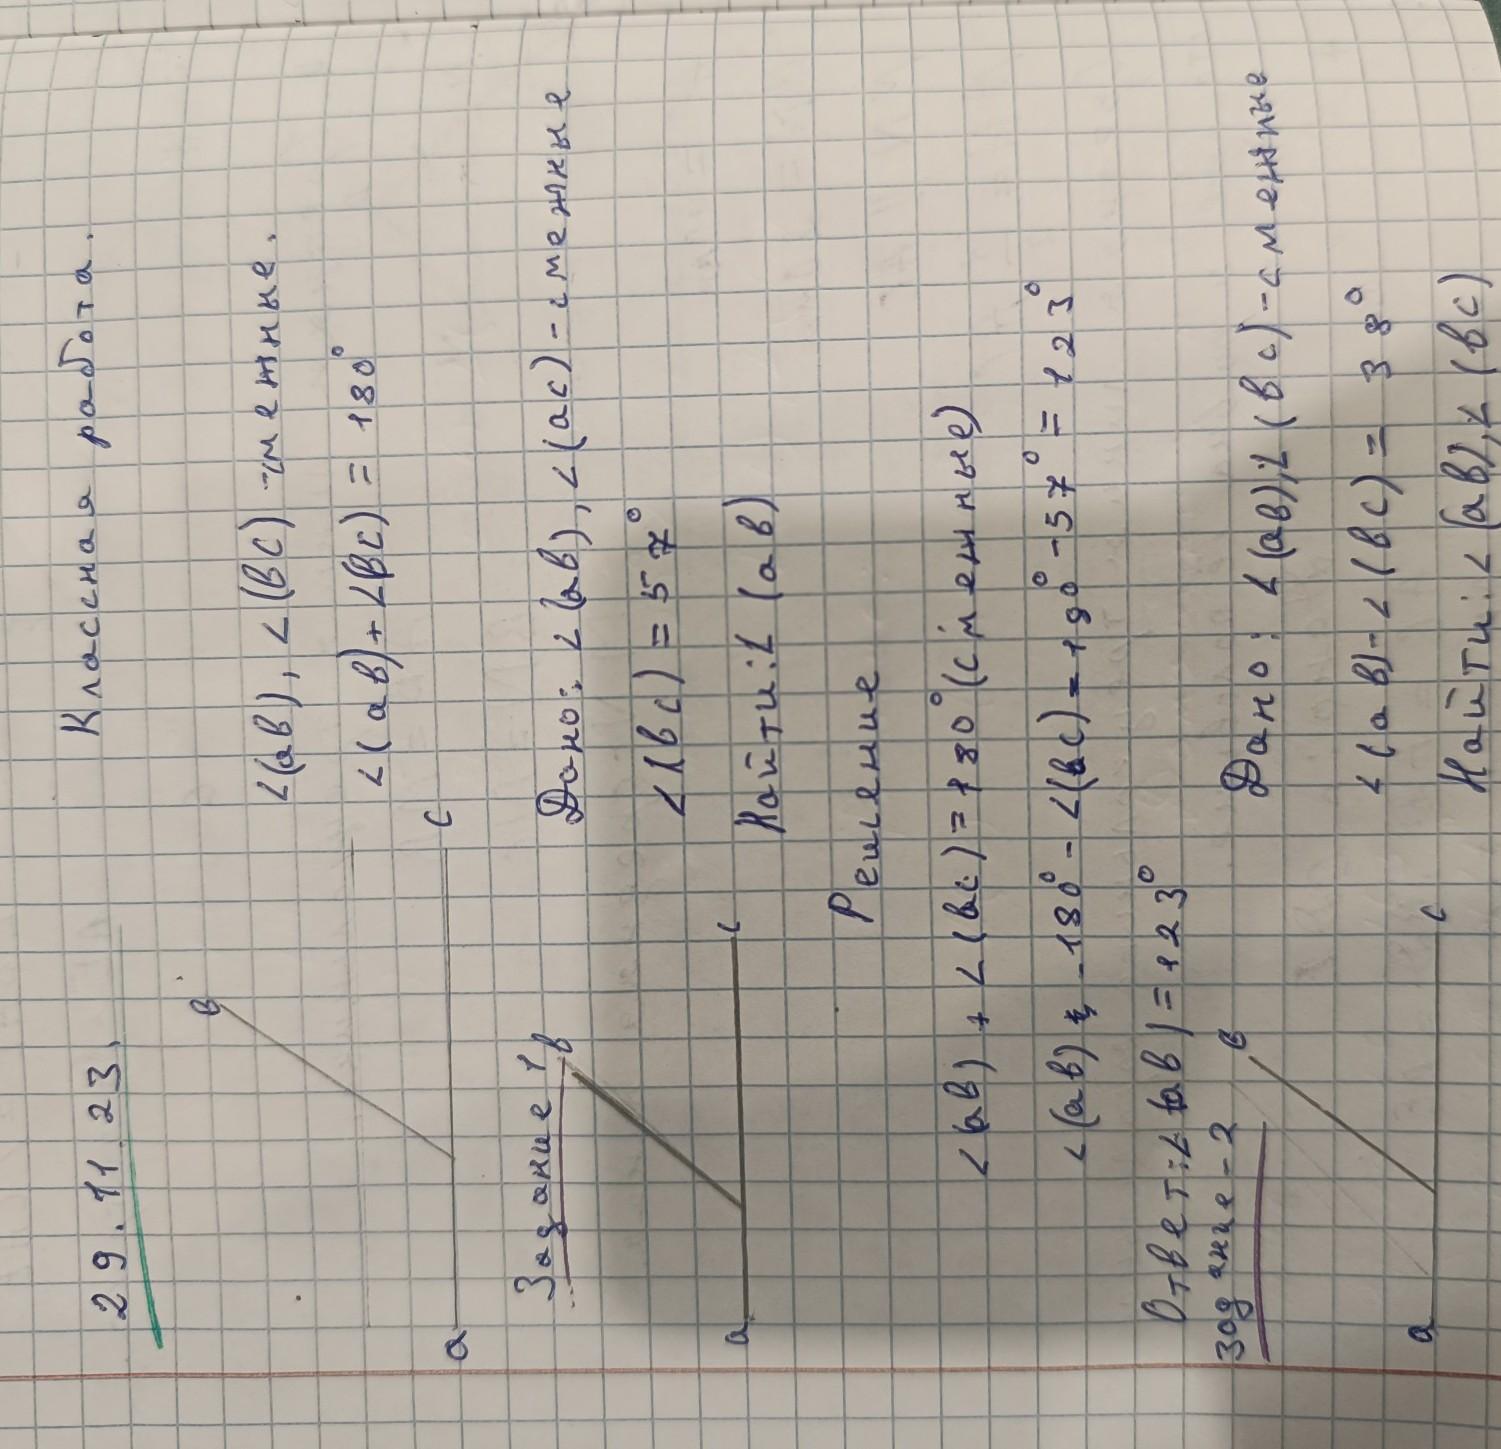 29.11.23.
Классная работа.
в
∠(ав), ∠(вс) смежные.
∠(ав)+∠(вс)=180°
а
с
Задание 1
Дано: ∠(ав), ∠(ас)-смежные
в
∠(вс)=57°
Найти:∠(ав)
а
с
Решение
∠(ав)+∠(вс)=180°(смежные)
∠(ав)=180°-∠(вс)=180°-57°=123°
Ответ:∠(ав)=123°
задание-2
Дано: ∠(ав),∠(вс)-смежные
в
∠(ав)-∠(вс)=38°
Найти:∠(ав),∠(вс)
а
с